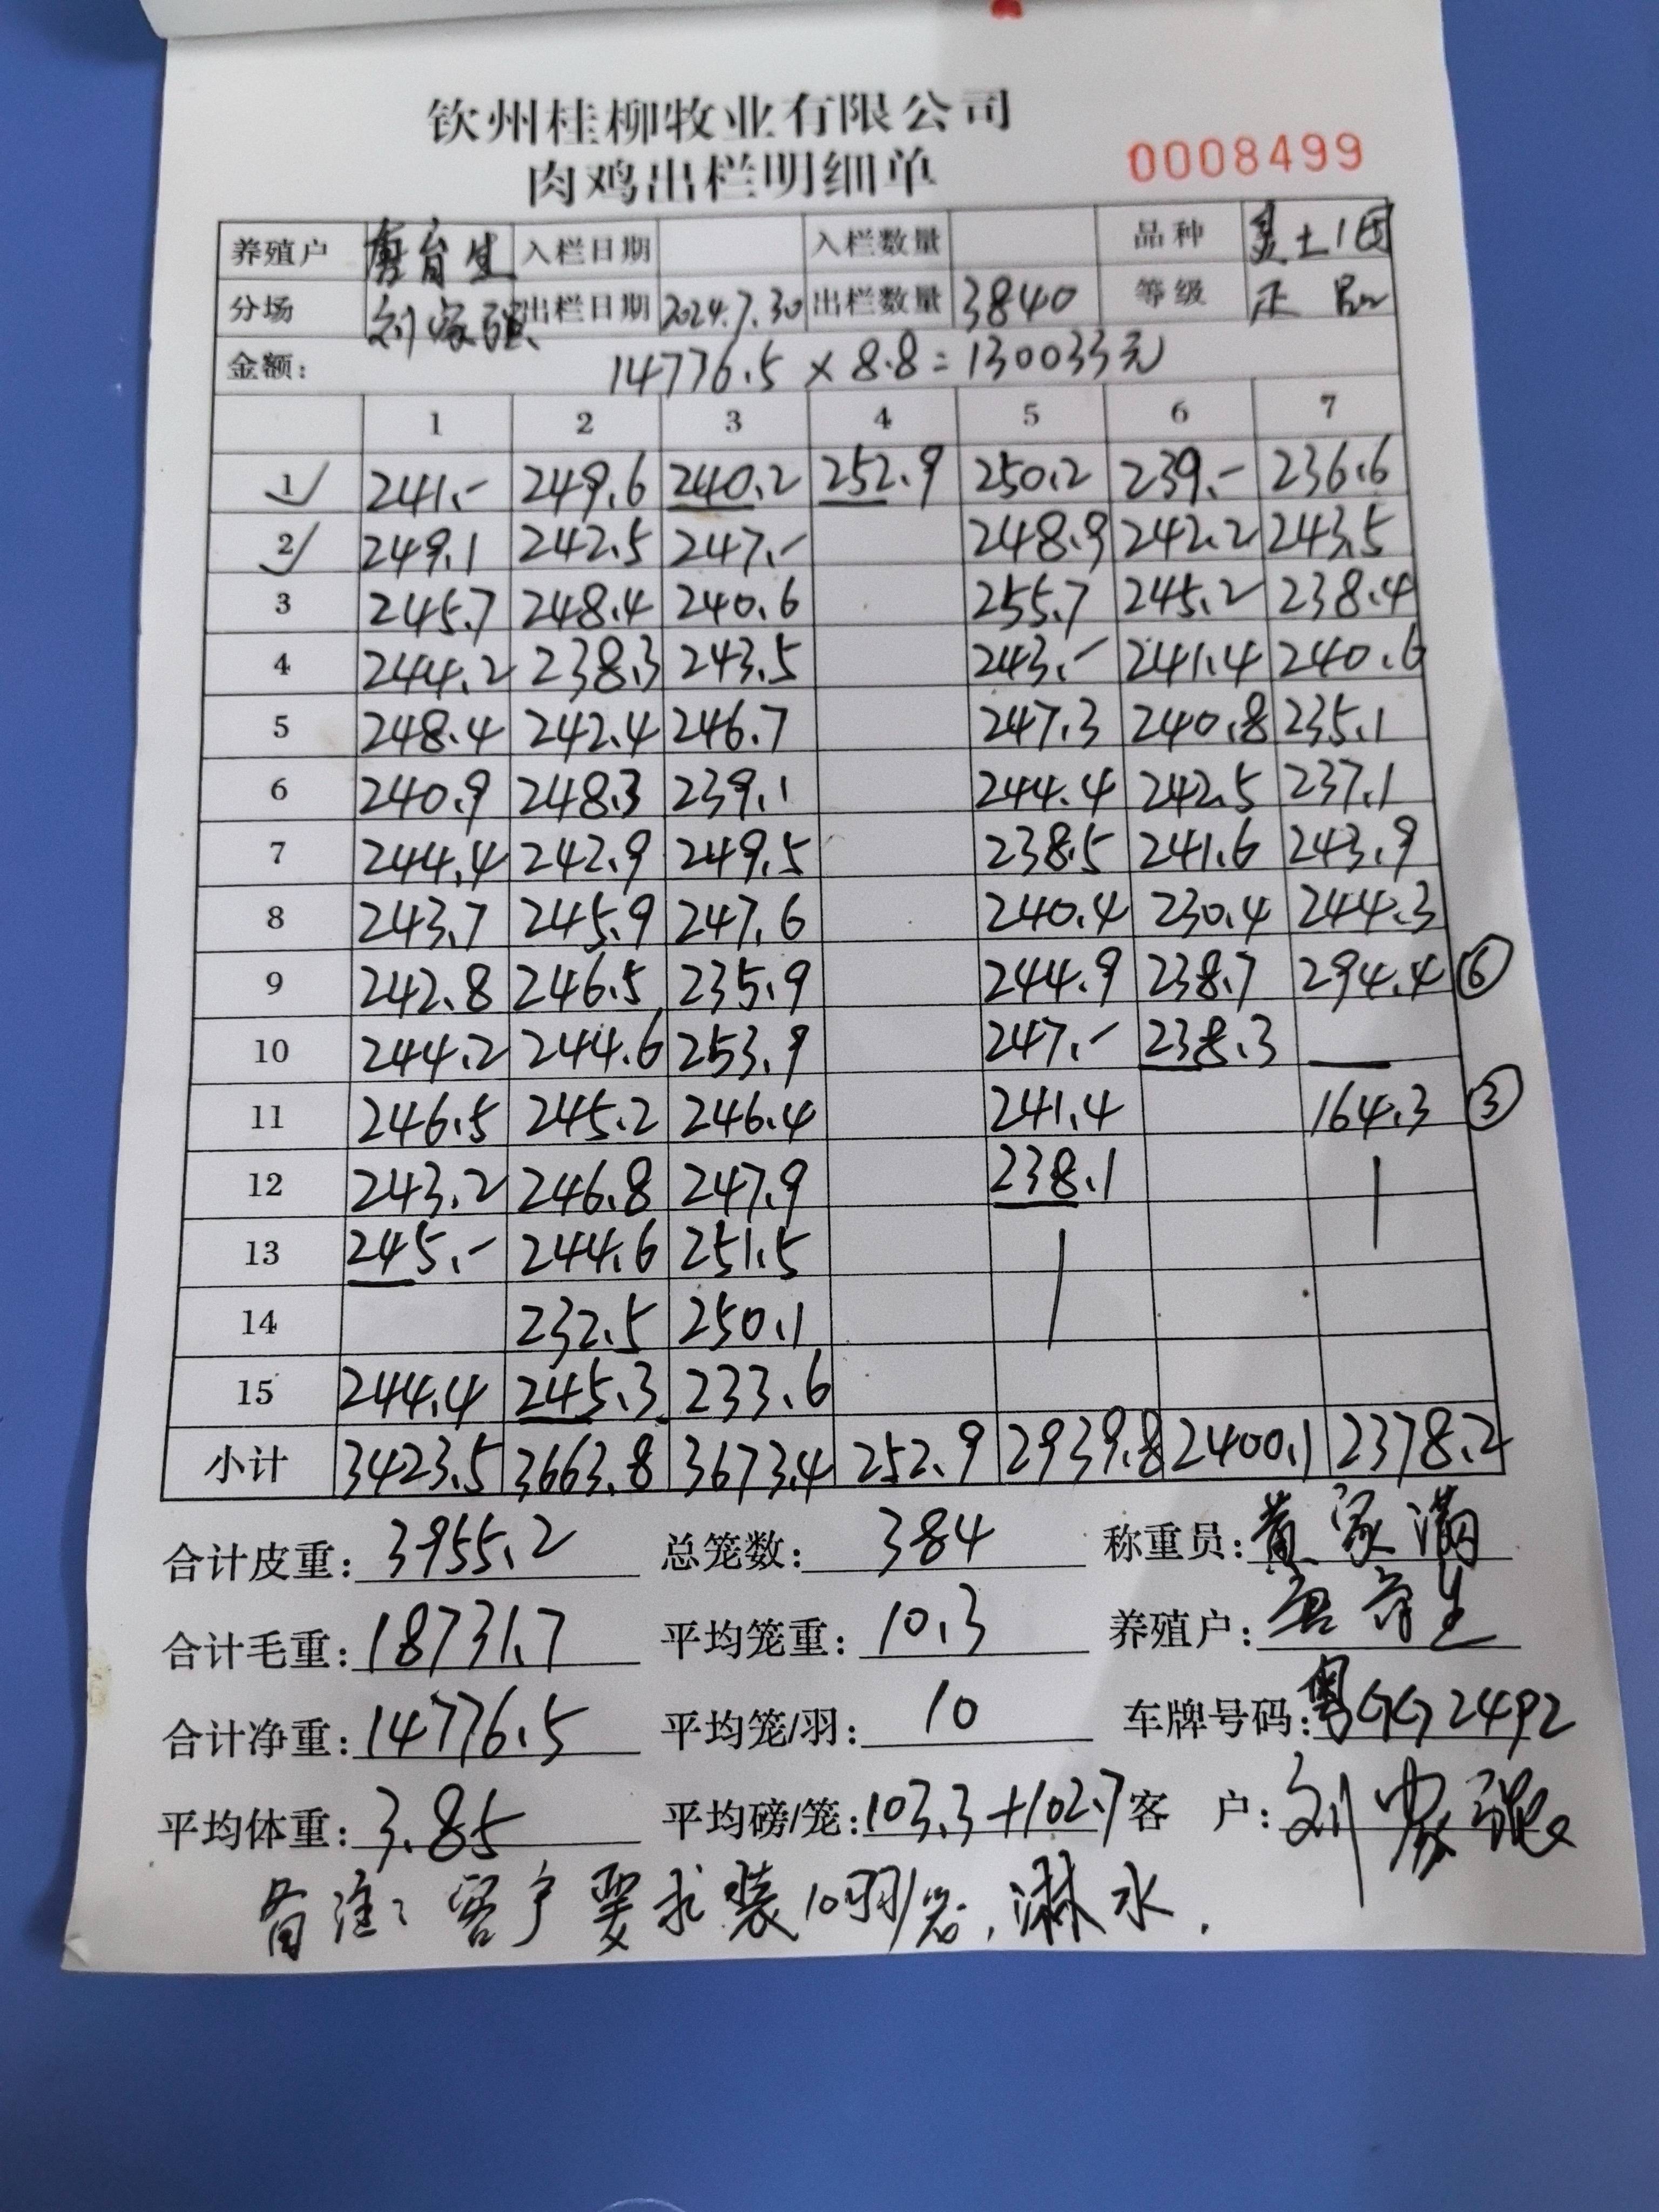 钦州桂柳牧业有限公司
肉鸡出栏明细单
0008499
养殖户 唐育生 入栏日期 入栏数量 品种 灵土1号
分场 刘家强 出栏日期 2024.7.30 出栏数量 3840 等级 正品
金额: 14776.5 × 8.8 = 130033元
1 2 3 4 5 6 7
1 241.- 249.6 240.2 252.9 250.2 239.- 236.6
2 249.1 242.5 247.- 248.9 242.2 243.5
3 245.7 248.4 240.6 255.7 245.2 238.4
4 244.2 238.3 243.5 243.- 241.4 240.6
5 248.4 242.4 246.7 247.3 240.8 235.1
6 240.9 248.3 239.1 244.4 242.5 237.1
7 244.4 242.9 249.5 238.5 241.6 243.9
8 243.7 245.9 247.6 240.4 230.4 244.3
9 242.8 246.5 235.9 244.9 238.7 294.4 ⑥
10 244.2 244.6 253.9 247.- 238.3
11 246.5 245.2 246.4 241.4 164.3 ③
12 243.2 246.8 247.9 238.1
13 245.- 244.6 251.5
14 232.5 250.1
15 244.4 245.3 233.6
小计 3423.5 3663.8 3673.4 252.9 2939.8 2400.1 2378.2
合计皮重: 3955.2 总笼数: 384 称重员: 黄家满
合计毛重: 18731.7 平均笼重: 10.3 养殖户: 唐育生
合计净重: 14776.5 平均笼/羽: 10 车牌号码: 粤GG2492
平均体重: 3.85 平均磅/笼: 103.3+102.7 客 户: 刘家强
备注: 客户要求装10羽/笼, 淋水.